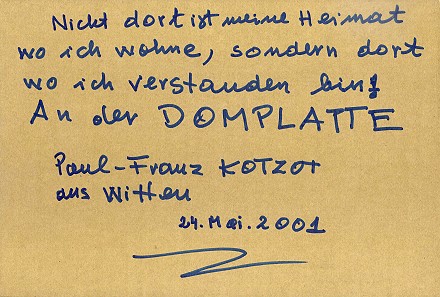 Nicht dort ist meine Heimat
wo ich wohne, sondern dort
wo ich verstanden bin!
An der DOMPLATTE
Paul-Franz KOTZOT
aus Witten
24. Mai. 2001